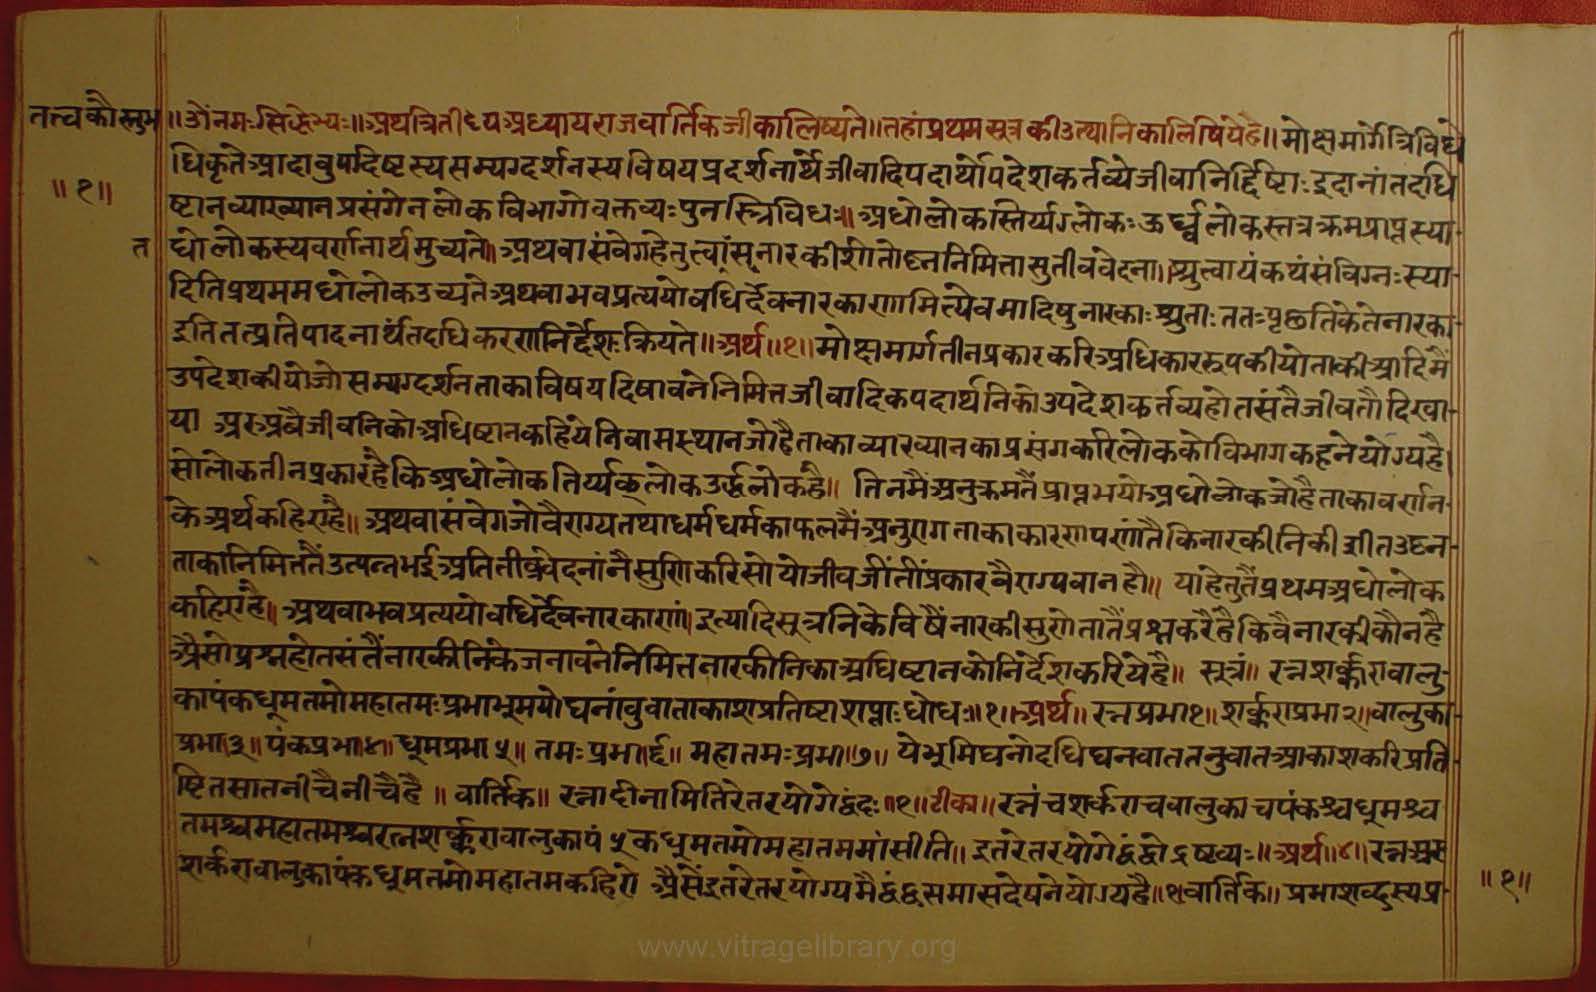 तत्त्वकौस्तुभ ॥ओंनमःसिद्धेभ्यः॥अथत्रितीय्यअध्यायराजवार्तिकजीकालिष्यते॥तहांप्रथमसूत्रकीउत्थानिकालिषियेहै॥मोक्षमार्गेत्रिविधे
धिकृतेआदावुपदिष्टस्यसम्यग्दर्शनस्यविषयप्रदर्शनार्थेजीवादिपदार्थोपदेशकर्तव्येजीवानिर्द्दिष्टाःइदानांतदधि
॥१॥
ष्टानव्याख्यानप्रसंगेनलोकविभागोवक्तव्यःपुनस्त्रिविधः॥अधोलोकस्तिर्य्यग्लोकःऊर्ध्वलोकस्तत्रक्रमप्राप्तस्या-
त
धोलोकस्यवर्णनार्थमुच्यते॥अथवासंवेगहेतुत्वांसूनारकीशीतोष्ननिमित्तासुतीववेदना॥श्रुत्वायंकथंसंविग्नःस्या-
दितिप्रथममधोलोकउच्यतेअथवाभवप्रत्ययोवधिर्देवनारकाणामित्येवमादिषुनारकाःश्रुताःततःपृछतिकेतेनारका-
इतितत्प्रतिपादनार्थंतदधिकरणनिर्द्देशःक्रियते॥अर्थ॥१॥मोक्षमार्गतीनप्रकारकरिअधिकाररूपकीयोताकीआदिमैं
उपदेशकीयोजोसम्यग्दर्शनताकाविषयदिषावनेनिमित्तजीवादिकपदार्थनिकोउपदेशकर्तव्यहोतसंतैजीवतौदिखा-
या अरुअबैजीवनिकोअधिष्टानकहियेनिवासस्थानजोहैताकाव्याख्यानकाप्रसंगकरिलोककोविभागकहनेयोग्यहै।
सोलोकतीनप्रकारहैकिअधोलोकतिर्य्यक्लोकउर्द्धलोकहै॥ तिनमैंअनुक्रमतैंप्राप्तभयोअधोलोकजोहैताकावर्णन-
केअर्थकहिएहै॥ अथवासंवेगजोवैराग्यतथाधर्मधर्मकाफलमैंअनुरागताकाकारणपणांतैकिनारकीनिकीशीतउष्न-
ताकानिमित्ततैंउत्पन्नभईअतितीव्रवेदनांनैसुणिकरिसोयोजीवजींतींप्रकारवैराग्यवानहौ॥ याहेतुतैंप्रथमअधोलोक
कहिएहै॥ अथवाभवप्रत्ययोवधिर्देवनारकाणां।इत्यादिसूत्रनिकेविषैंनारकीसुणेतातैंप्रश्नकरैहैकिवैनारकीकौनहै
अैसोप्रश्नहोतसंतैंनारकीनिकेजनावनेनिमित्तनारकीनिकाअधिष्टानकोनिर्देशकरियेहै॥ सूत्रं॥ रत्नशर्क्करावालु-
कापंकधूमतमोमहातमःप्रभाभूमयोघनांवुवाताकाशप्रतिष्टाःशप्ताःधोधः॥१॥अर्थ॥रत्नप्रभा१॥शर्क्कराप्रभा२॥वालुका
प्रभा।३॥पंकप्रभा।४॥धूमप्रभा५॥ तमःप्रभा।६॥ महातमःप्रभा॥७॥ येभूमिघनोदधिघनवाततनुवातआकाशकरिप्रति
ष्टितसातनीचैनीचैहै॥वार्तिक॥रत्नादीनामितिरेतरयोगेद्वंदः॥१॥टीका॥रत्नंचशर्कराचवालुकाचपंकश्चधूमश्च
तमश्चमहातमश्चरत्नशर्क्करावालुकापं५कधूमतमोमहातममांसीति॥इतरेतरयोगेद्वंद्वोद्रष्टव्यः॥अर्थ॥८॥रत्नअरु
शर्करावालुकापंकधूमतमोमहातमकहिये अैसेंइतरेतरयोग्यमैद्वंद्वसमासदेषनेयोग्यहै॥१॥वार्तिक॥प्रभाशब्दस्यप्र-
॥१॥
www.vitragelibrary.org